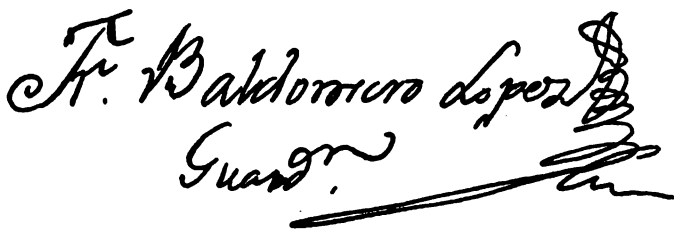 Fr. Baldomero Lopez
Guardn.